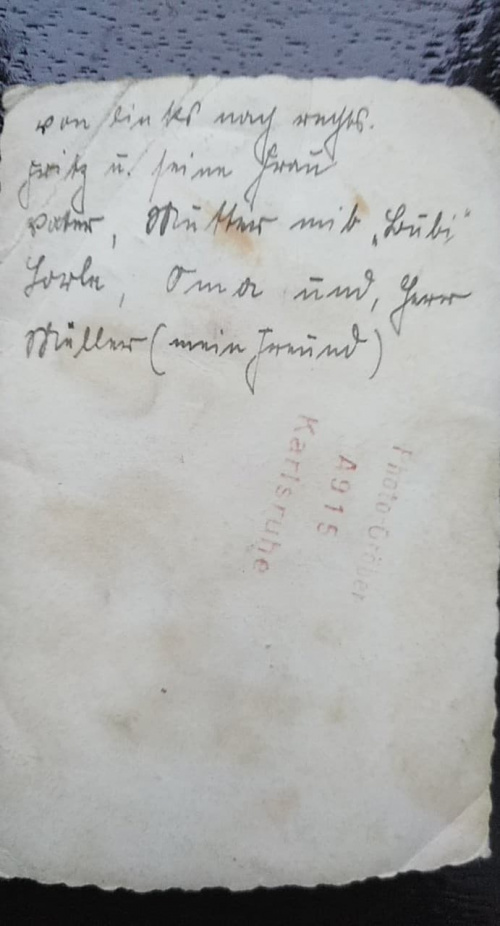 von links nach rechts.
Fritz u. seine Frau
Vater, Mutter mit „Bubi"
Lorle, Oma und, Herr
Müller (mein Freund)
Photo-Gröber
A915
Karlsruhe